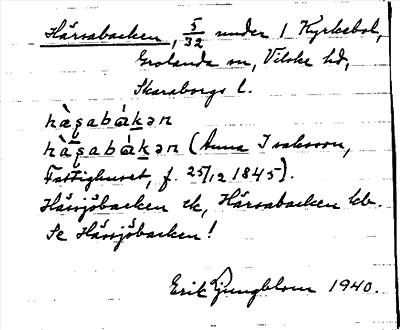 Härsabacken, 5/32 under 1 Kyrkebol,
Grolanda sn, Vilske hd,
Skaraborgs l.
hàʂabákən
hàʂabákən (Anna Isaksson,
Fattighuset, f. 25/12 1845).
Härsjöbacken ek, Härsabacken kb.
Se Härsjöbacken!
Erik Ljungblom 1940.